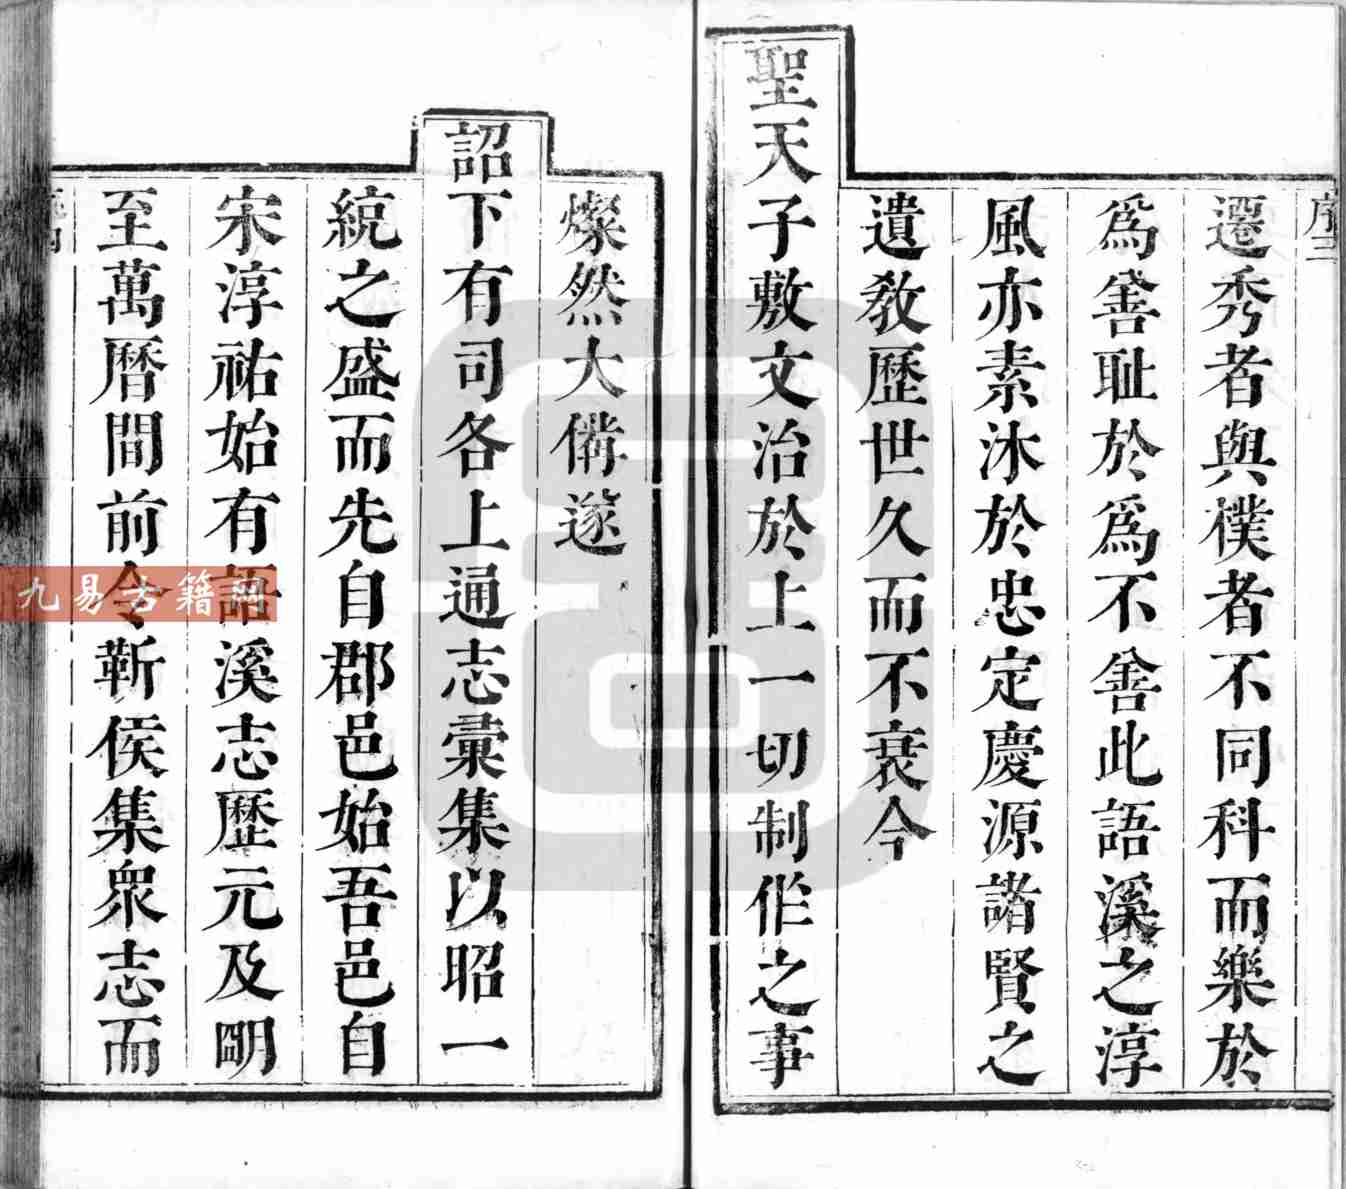 序三
遷秀者與樸者不同科而樂於
為善耻於為不善此語溪之淳
風亦素沐於忠定慶源諸賢之
遺教歷世久而不衰今
聖天子敷文治於上一切制作之事
燦然大備遂
詔下有司各上通志彙集以昭一
統之盛而先自郡邑始吾邑自
宋淳祐始有語溪志歷元及明
至萬曆間前令靳侯集衆志而
九易古籍网